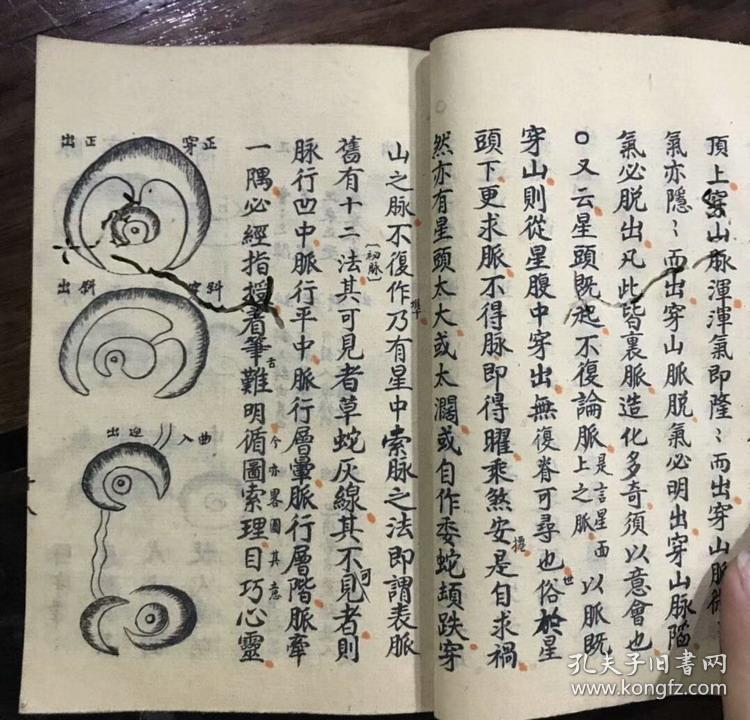 頂上穿山脉渾渾氣即隆〻而出穿山脉微
氣亦隱〻而出穿山脉脱氣必明出穿山脉陷
氣必脱出凡此皆裏脉造化多奇須以意會也
○又云星頭既起不復論脉上之脉是言星面以脉既
穿山則從星腹中穿出無復脊可尋也俗於星
世
頭下更求脉不得脉即得曜乘煞安是自求禍
然亦有星頭太大或太濶或自作委蛇頓跌穿
山之脉不復作乃有星中索脉之法即謂表脉
[初脉]
舊有十二法其可見者草蛇灰線其不見者則
可
脉行凹中脉行平中脉行層暈脉行層階脉牽
一隅必經指授着筆難明循圖索理目巧心靈
舌
今亦畧圖其意
正穿
正出
斜穿
斜出
曲入
迎出
孔夫子旧书网
www.kongfz.com